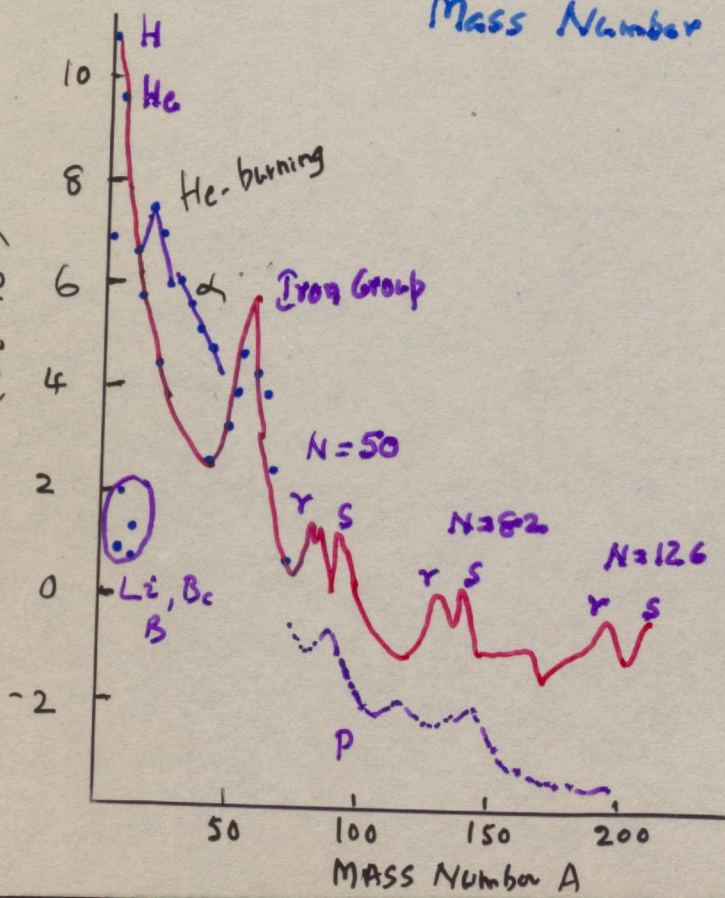 Mass Number
H
10
He
8
He-burning
6
α
Iron Group
4
N=50
2
r
s
N=82
r
s
N=126
r
s
0
Li, Be
B
-2
P
50
100
150
200
MASS Number A